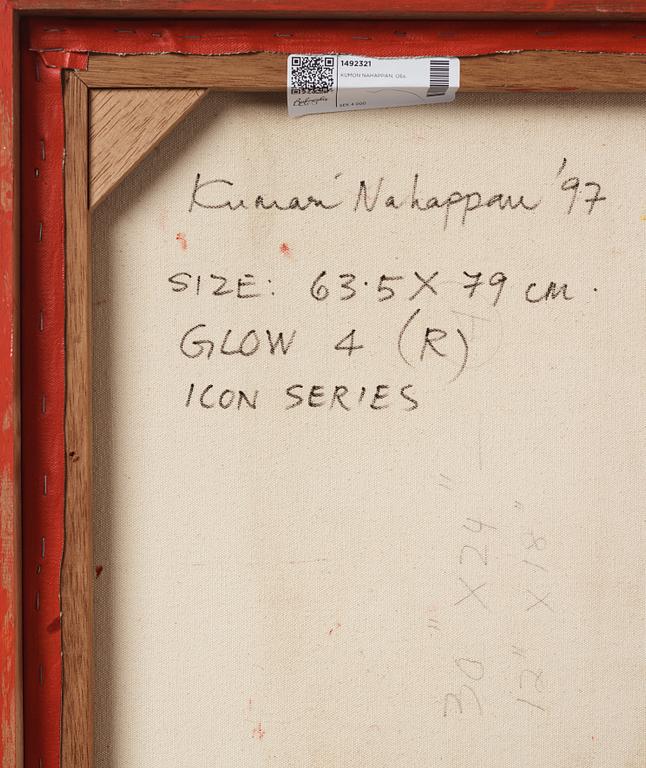 1492321
KUMON NAHAPPAN, Olja.
SEK 4 000
Kumari Nahappan '97
SIZE: 63.5 X 79 cm.
GLOW 4 (R)
ICON SERIES
30" X 24"
12" X 18"